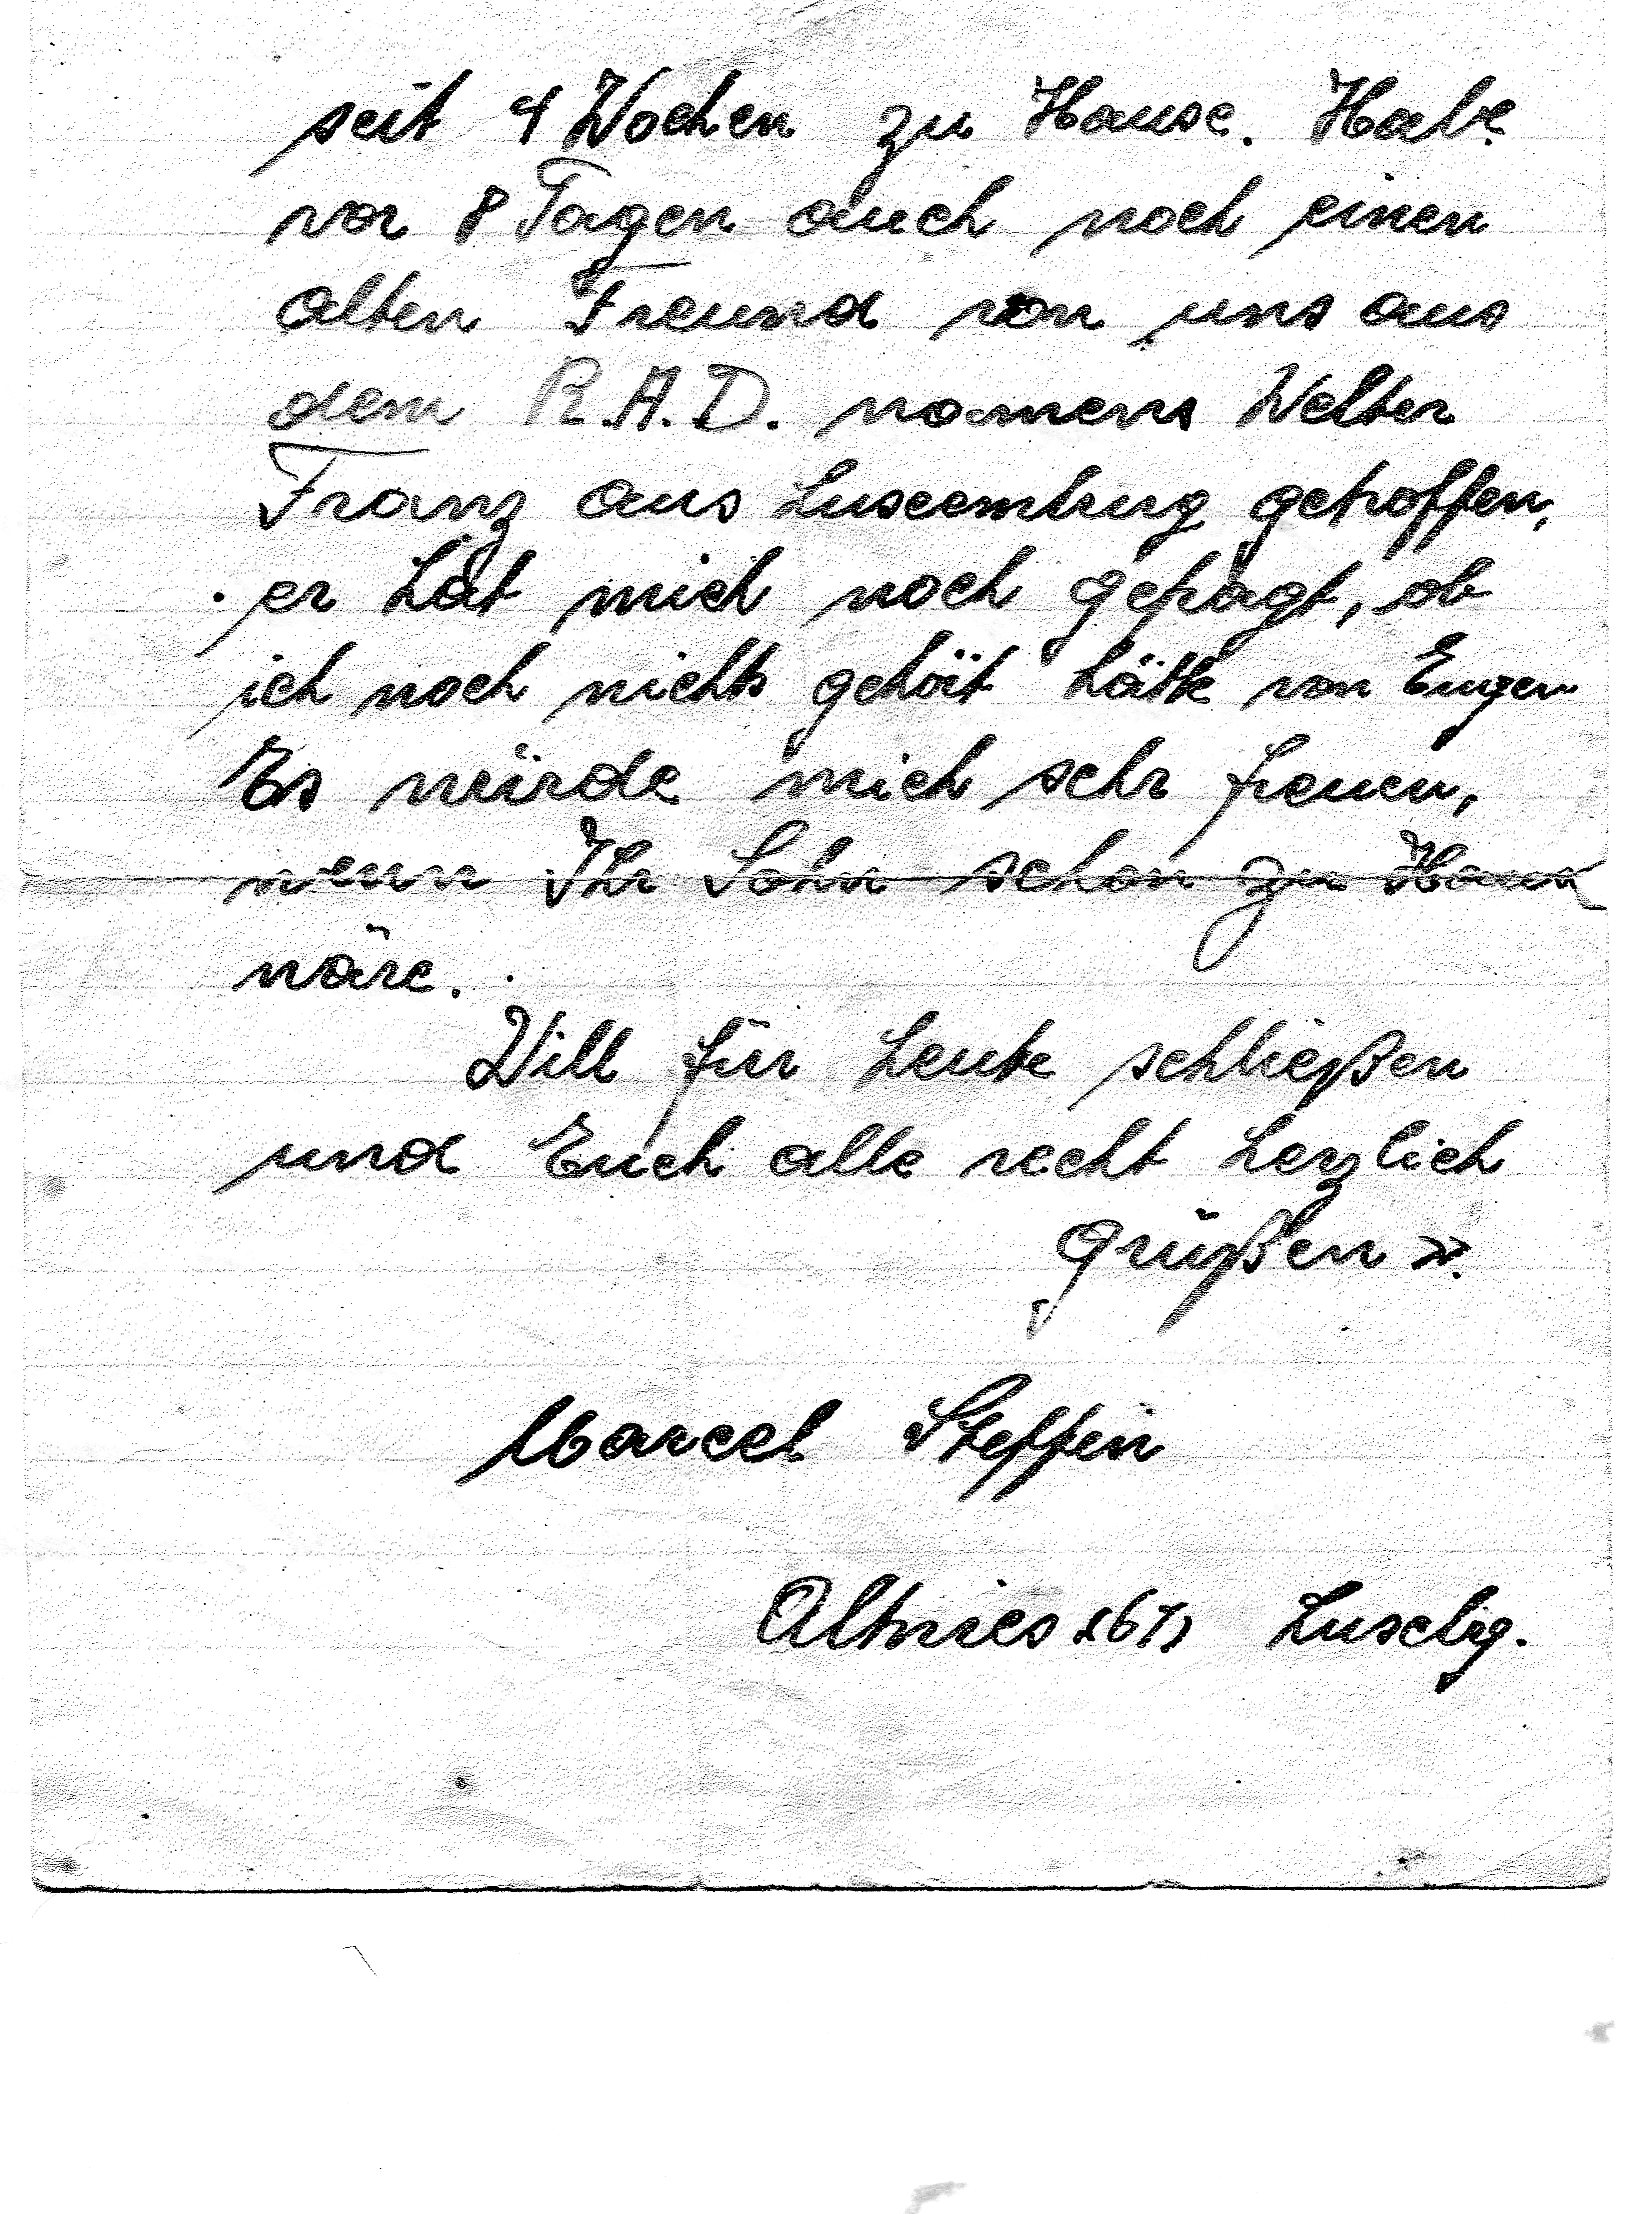 seit 4 Wochen zu Hause. Habe
vor 8 Tagen auch noch einen
alten Freund von uns aus
dem R.A.D. namens Welter
Franz aus Luxemburg getroffen,
er hat mich noch gefragt, ob
ich noch nichts gehört hätte von Eugen.
Es würde mich sehr freuen,
wenn Ihr Sohn schon zu Hause
wäre.
Will für heute schließen
und Euch alle recht herzlich
grüßen
Marcel Steffen
Altwies Luxbg.